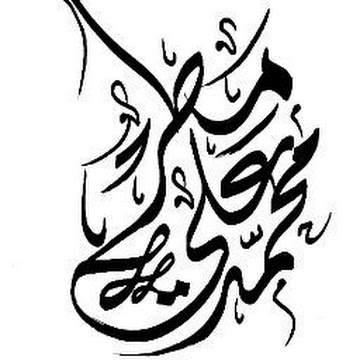 محمد علي مطر